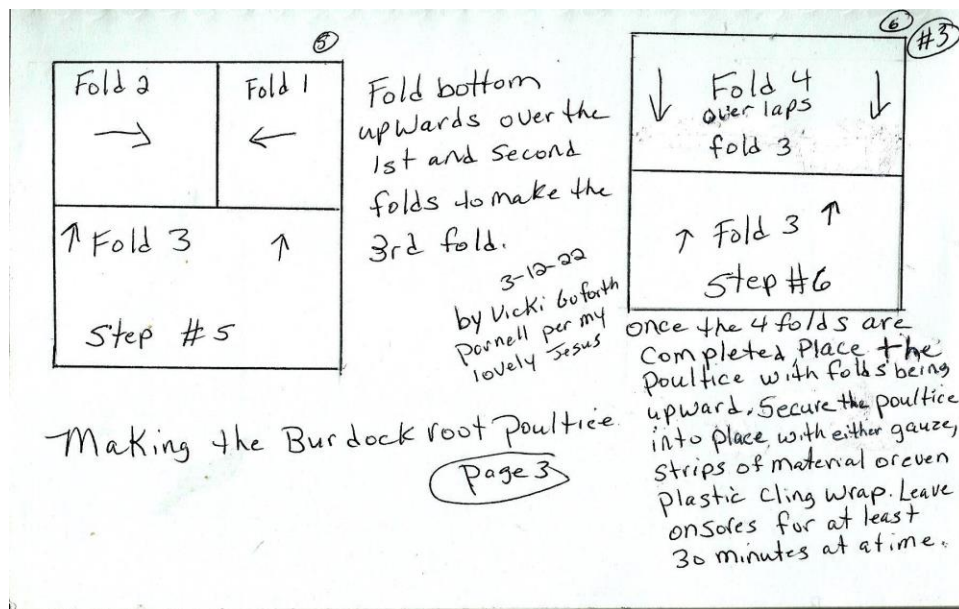 5
Fold 2
Fold 1
→
←
↑ Fold 3 ↑
Step #5
Fold bottom
upwards over the
1st and second
folds to make the
3rd fold.
3-12-22
by Vicki Goforth
Parnell per my
lovely Jesus
6
#3
↓ Fold 4 ↓
over laps
fold 3
↑ Fold 3 ↑
Step #6
once the 4 folds are
completed, Place the
Poultice with folds being
upward. Secure the poultice
into place, with either gauze,
strips of material or even
Plastic Cling wrap. Leave
on sores for at least
30 minutes at a time.
Making the Burdock root Poultice.
Page 3